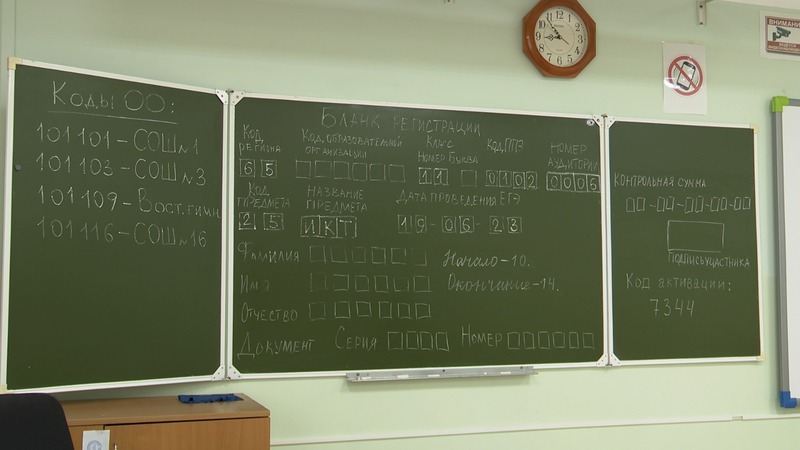 Коды ОО:
101101-СОШ№1
101103-СОШ№3
101109-Вост.гимн.
101116-СОШ№16
Бланк регистрации
Код региона
65
Код образовательной организации
Класс
Номер Буква
11
Код ППЭ
0102
Номер аудитории
0005
Код предмета
25
Название предмета
ИКТ
Дата проведения ЕГЭ
19-06-23
Фамилия
Начало-10.
Имя
Окончание-14.
Отчество
Документ Серия Номер
Контрольная сумма
Подпись участника
Код активации:
7344
ВНИМАНИЕ